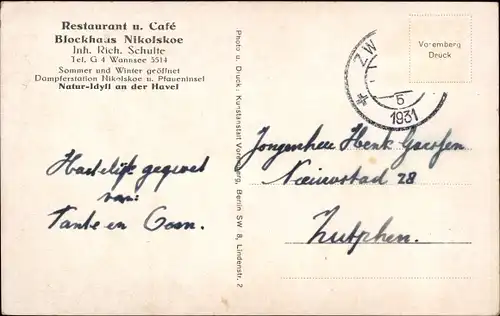 Restaurant u. Café
Blockhaus Nikolskoe
Inh. Rich. Schulte
Tel. G 4 Wannsee 5514
Sommer und Winter geöffnet
Dampferstation Nikolskoe u. Pfaueninsel
Natur-Idyll an der Havel
Hartelijk gegroet
van:
Tante en Oom.
Photo u. Druck: Kunstanstalt Voremberg, Berlin SW 8, Lindenstr. 2
ZW
5
1931
Voremberg
Druck
Jongenheer Henk
Nieuwstad 28
Zutphen.